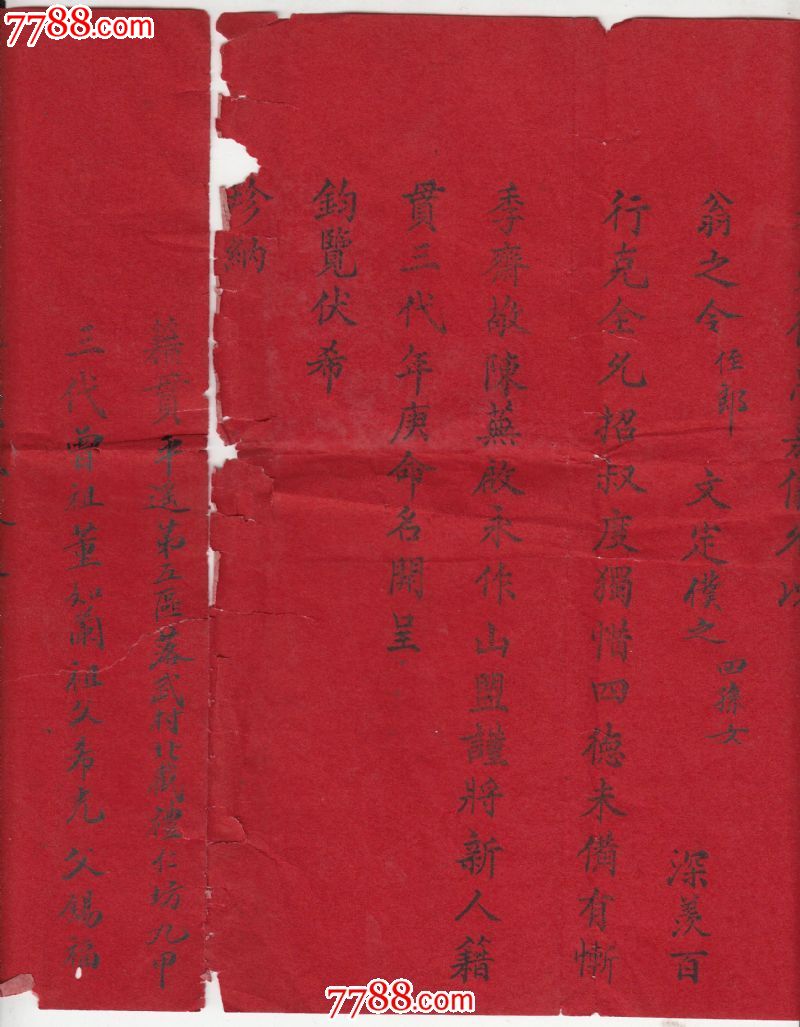 7788.com
翁之令侄郎 文定僕之四孫女 深羨百
行克全允招叔度獨慚四德未備有慚
季齊敬陳蕪啟永作山盟謹將新人籍
貫三代年庚命名開呈
鈞覽伏希
珍納
籍貫平遙第五區落武村北武禮仁坊九甲
三代曾祖董如蘭祖父希尤父錫福
7788.com